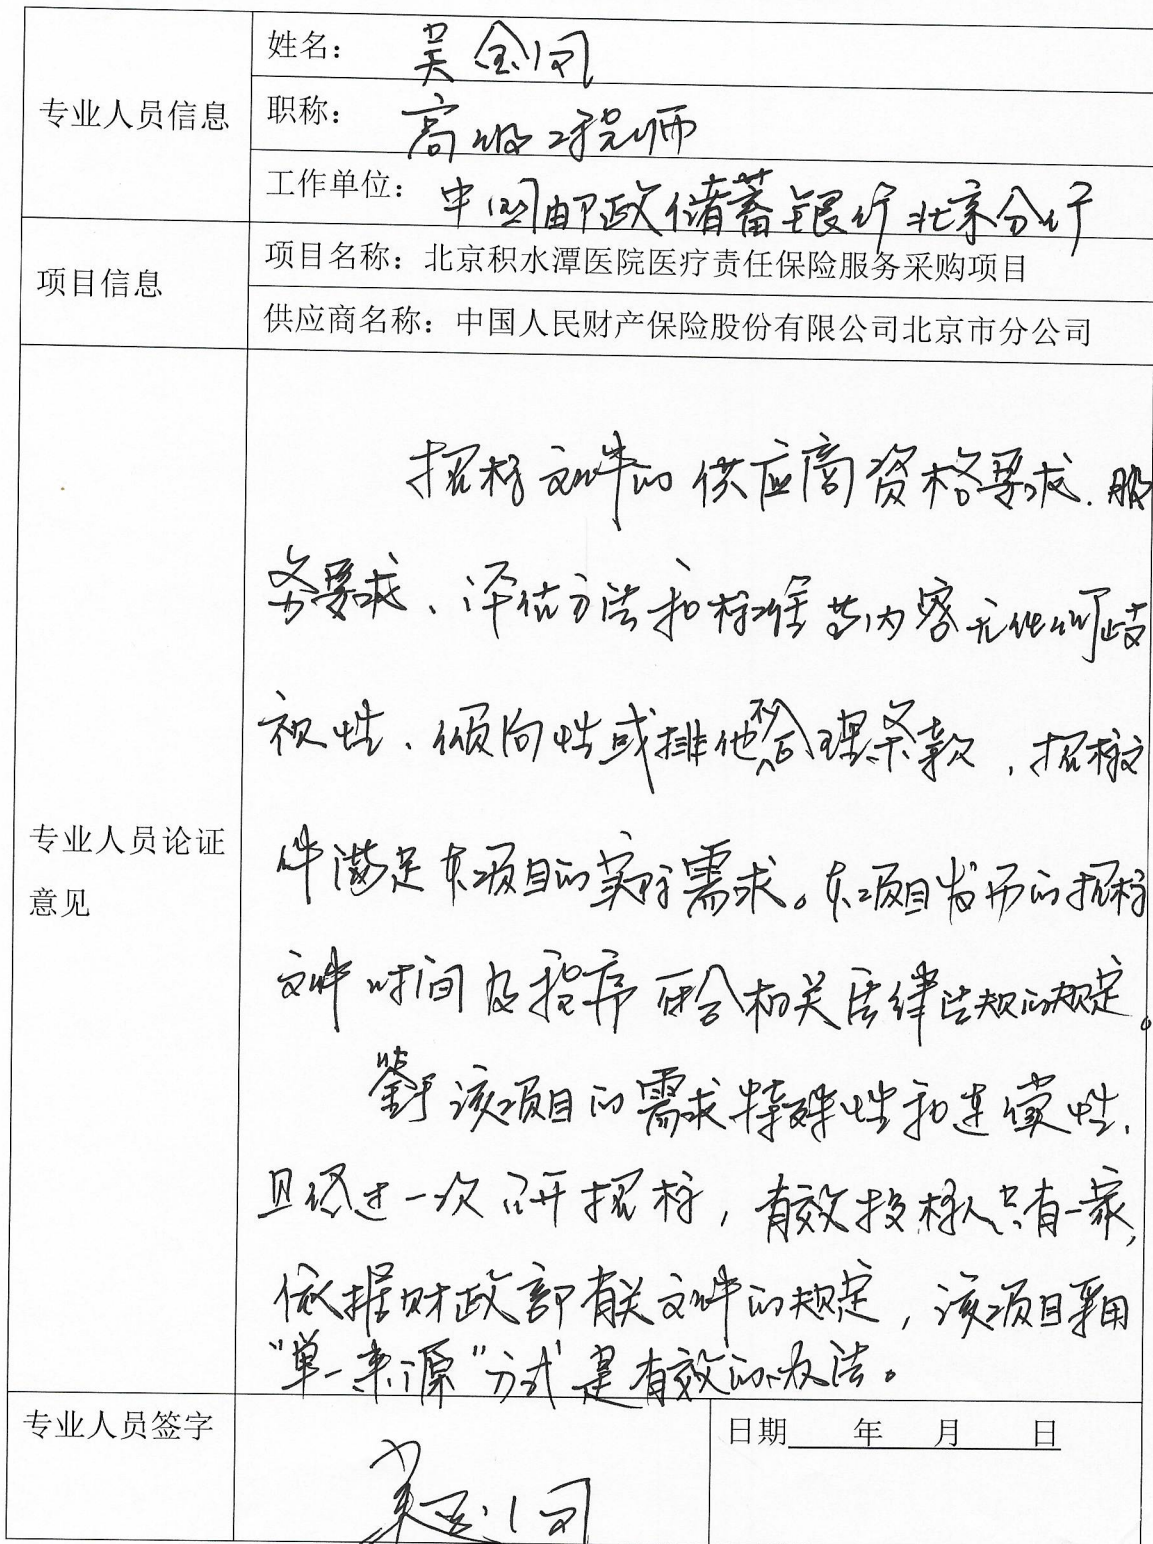 专业人员信息
姓名： 吴金闵
职称： 高级工程师
工作单位： 中国邮政储蓄银行北京分行
项目信息
项目名称：北京积水潭医院医疗责任保险服务采购项目
供应商名称：中国人民财产保险股份有限公司北京市分公司
专业人员论证
意见
招标文件的供应商资格要求、服
务要求、评估方法和标准等内容无任何歧
视性、倾向性或排他不合理条款，招标文
件满足本项目的实际需求。本项目发布的招标
文件时间及程序符合相关法律法规的规定。
鉴于该项目的需求特殊性和连续性，
且经过一次公开招标，有效投标人只有一家，
依据财政部有关文件的规定，该项目采用
“单一来源”方式是有效的办法。
专业人员签字
日期 年 月 日